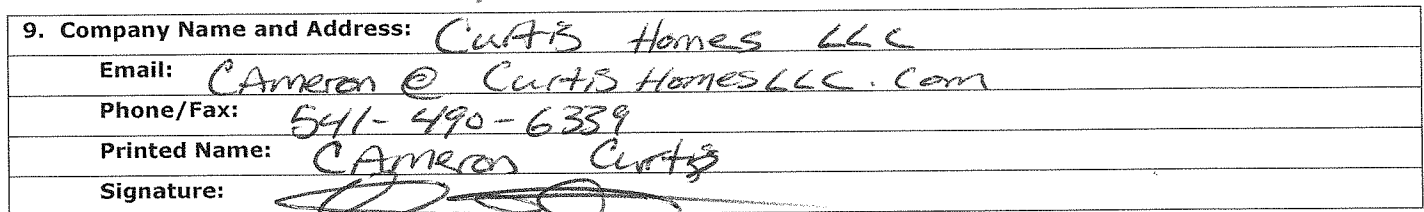 9. Company Name and Address: Curtis Homes LLC
Email: CAmeron @ Curtis Homes LLC . Com
Phone/Fax: 541-490-6339
Printed Name: CAmeron Curtis
Signature: